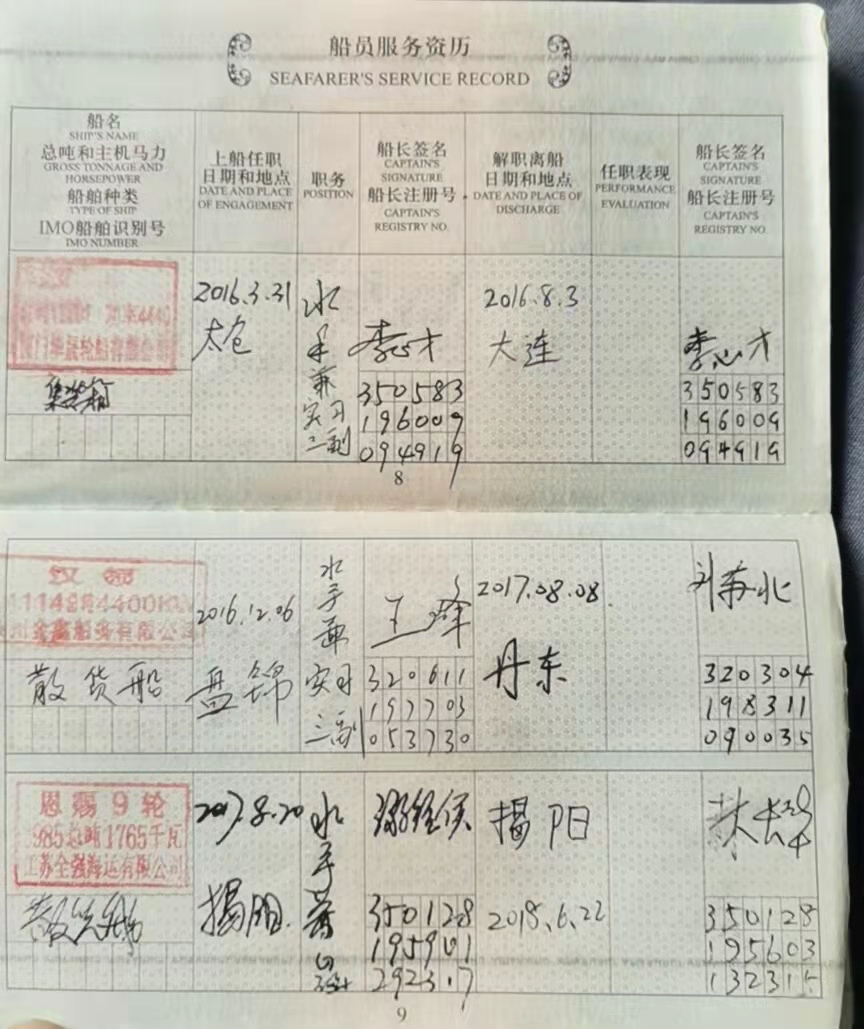 船员服务资历
SEAFARER'S SERVICE RECORD
船名
SHIP'S NAME
总吨和主机马力
GROSS TONNAGE AND
HORSEPOWER
船舶种类
TYPE OF SHIP
IMO船舶识别号
IMO NUMBER
上船任职
日期和地点
DATE AND PLACE
OF ENGAGEMENT
职务
POSITION
船长签名
CAPTAIN'S
SIGNATURE
船长注册号
CAPTAIN'S
REGISTRY NO.
解职离船
日期和地点
DATE AND PLACE OF
DISCHARGE
任职表现
PERFORMANCE
EVALUATION
船长签名
CAPTAIN'S
SIGNATURE
船长注册号
CAPTAIN'S
REGISTRY NO.
集装箱
2016.3.31
太仓
水
手
兼
实习
三副
李心才
350583
196009
094919
2016.8.3
大连
李心才
350583
196009
094919
8
散货船
2016.12.06
盘锦
水
手
兼
实习
三副
王峰
320611
197703
053730
2017.08.08
丹东
刘苏北
320304
198311
090035
恩赐9轮
985总吨1765千瓦
江苏全强海运有限公司
2017.8.20
揭阳
水
手
350128
195901
292317
揭阳
2018.6.22
350128
195603
132315
9